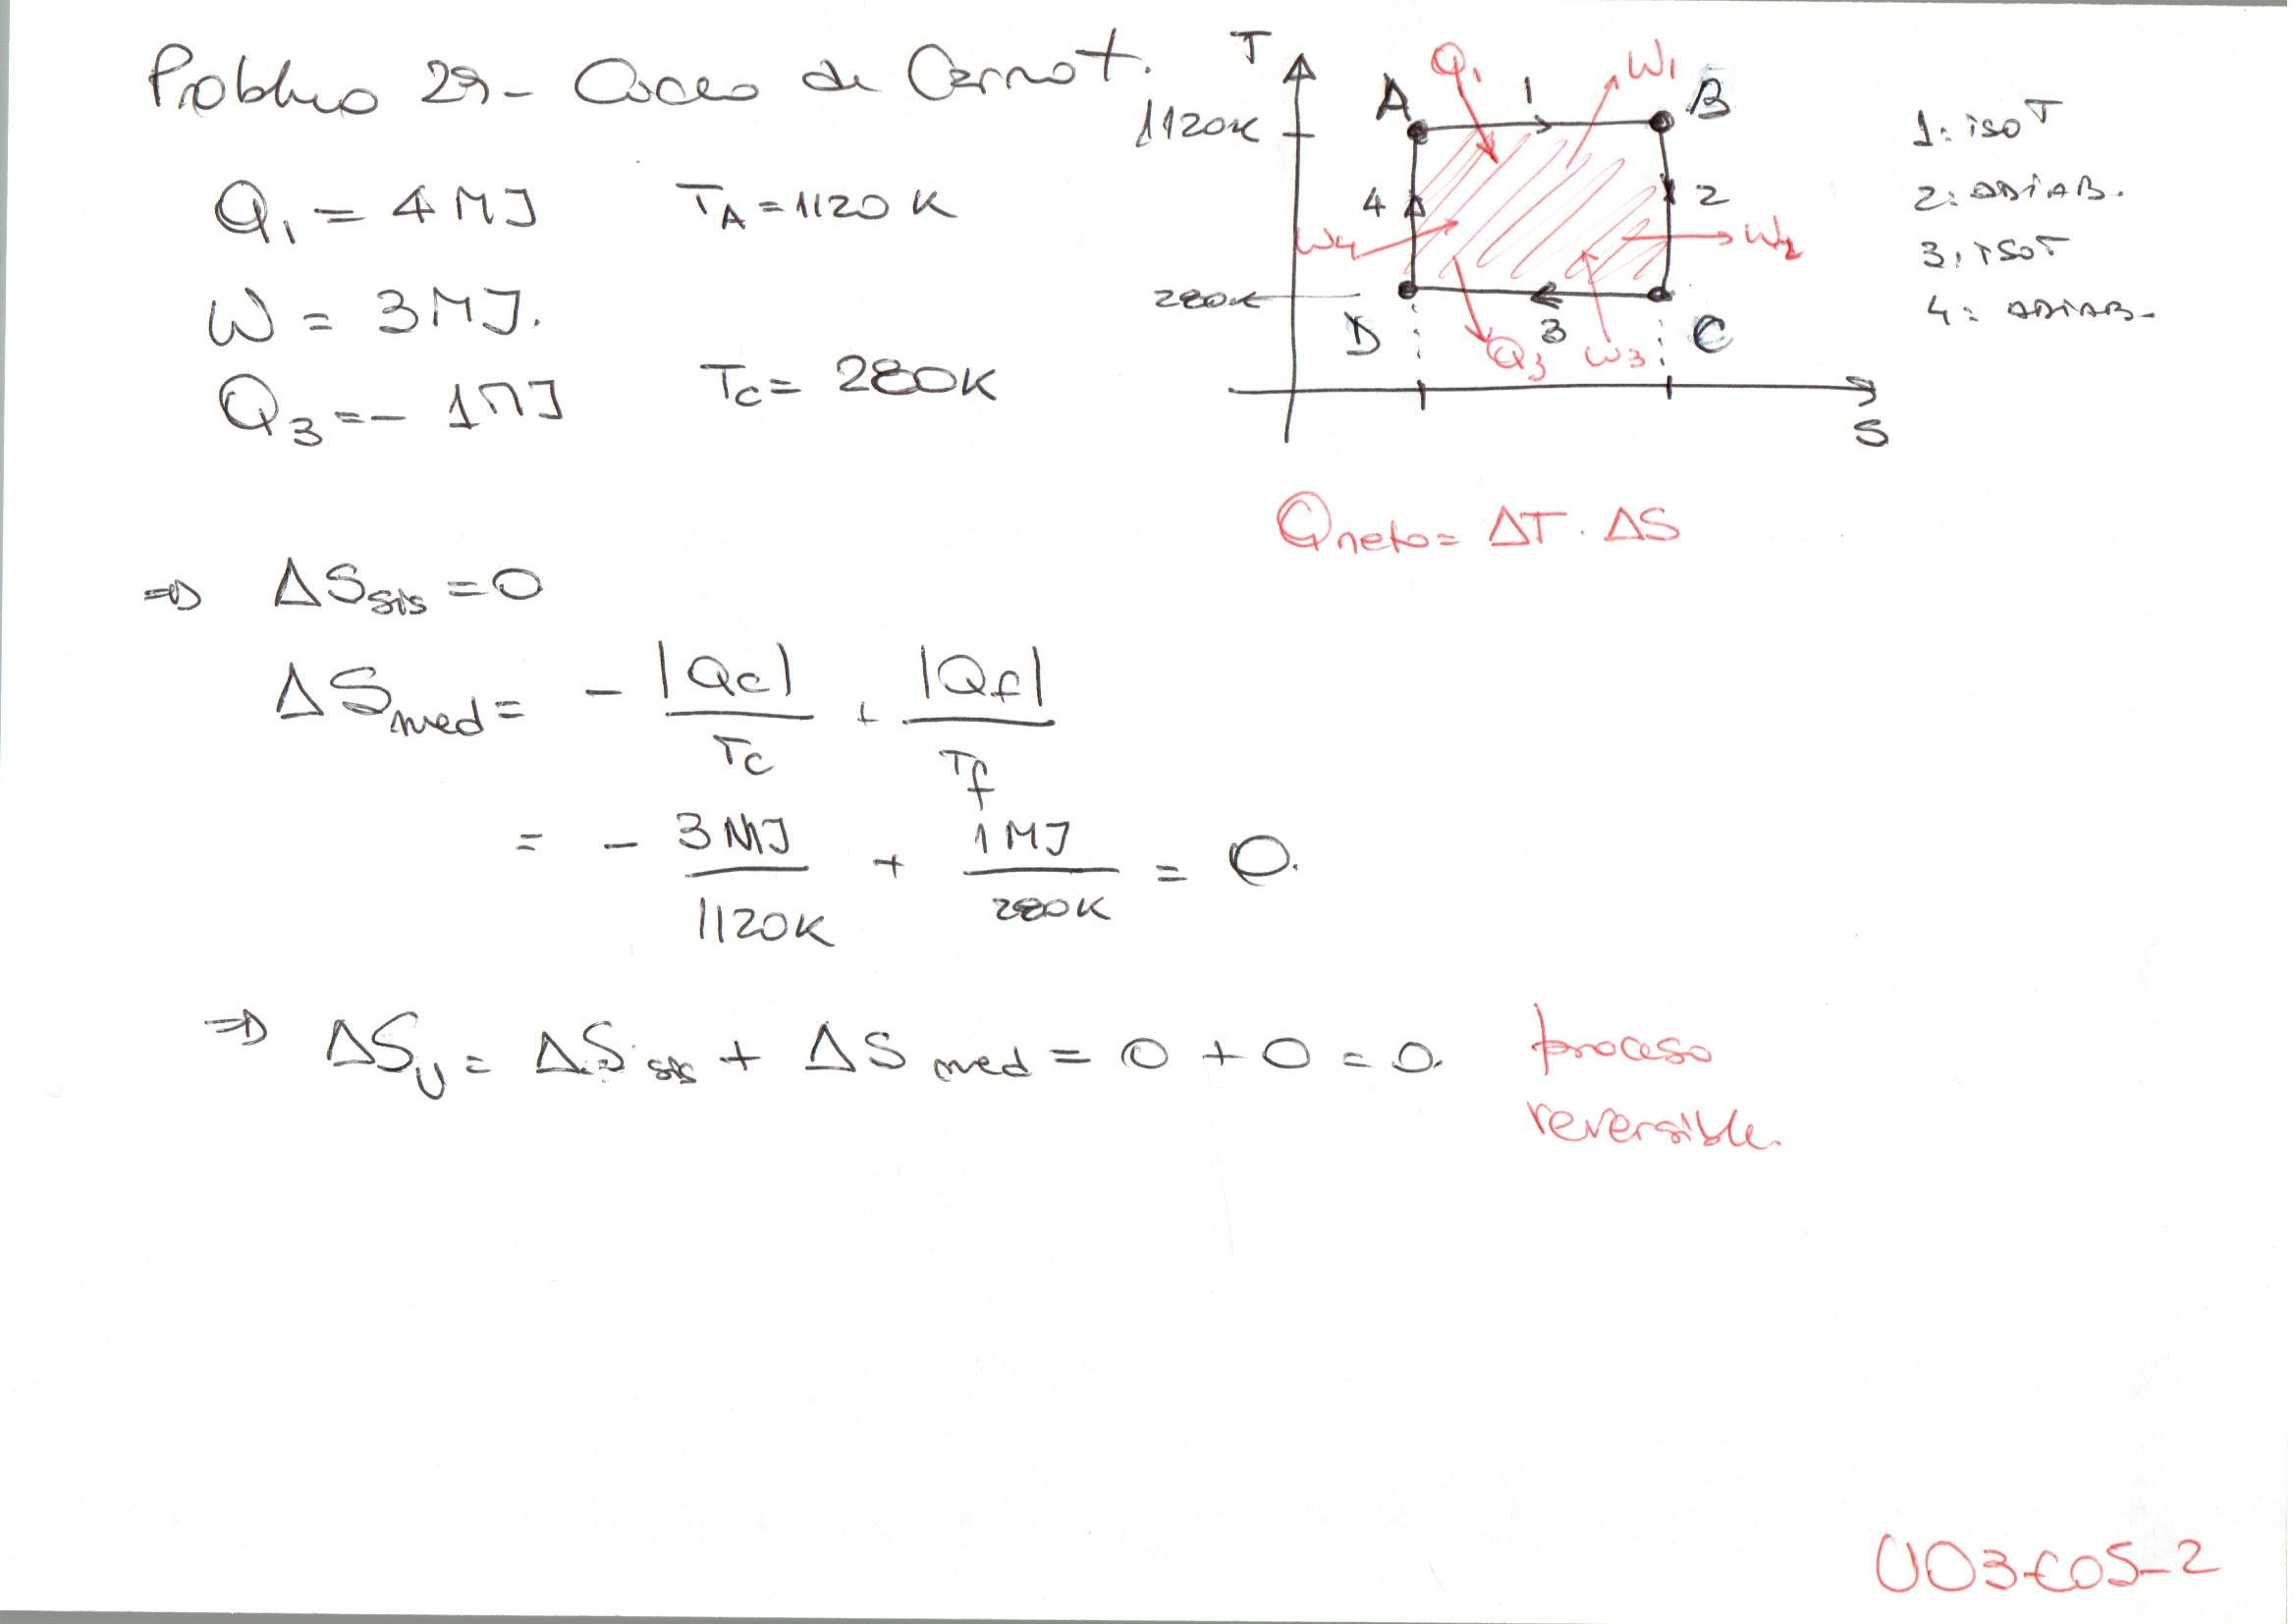 Problema 29- Ciclo de Carnot.
Q₁ = 4 MJ    T_A = 1120 K
W = 3 MJ.
Q₃ = - 1 MJ    T_C = 280K
T
1120K
A
Q₁
1
W₁
B
4
2
W₄
W₂
280K
D
Q₃
3
W₃
C
S
1: isoT
2: ADIAB.
3: ISOT
4: ADIAB.
Qneto = ΔT · ΔS
⇒ ΔS_sis = 0
ΔS_med = - |Qc| / Tc + |Qf| / Tf
= - 3 MJ / 1120K + 1 MJ / 280K = 0.
⇒ ΔS_U = ΔS_sis + ΔS_med = 0 + 0 = 0.
proceso
reversible.
U03-C05-2